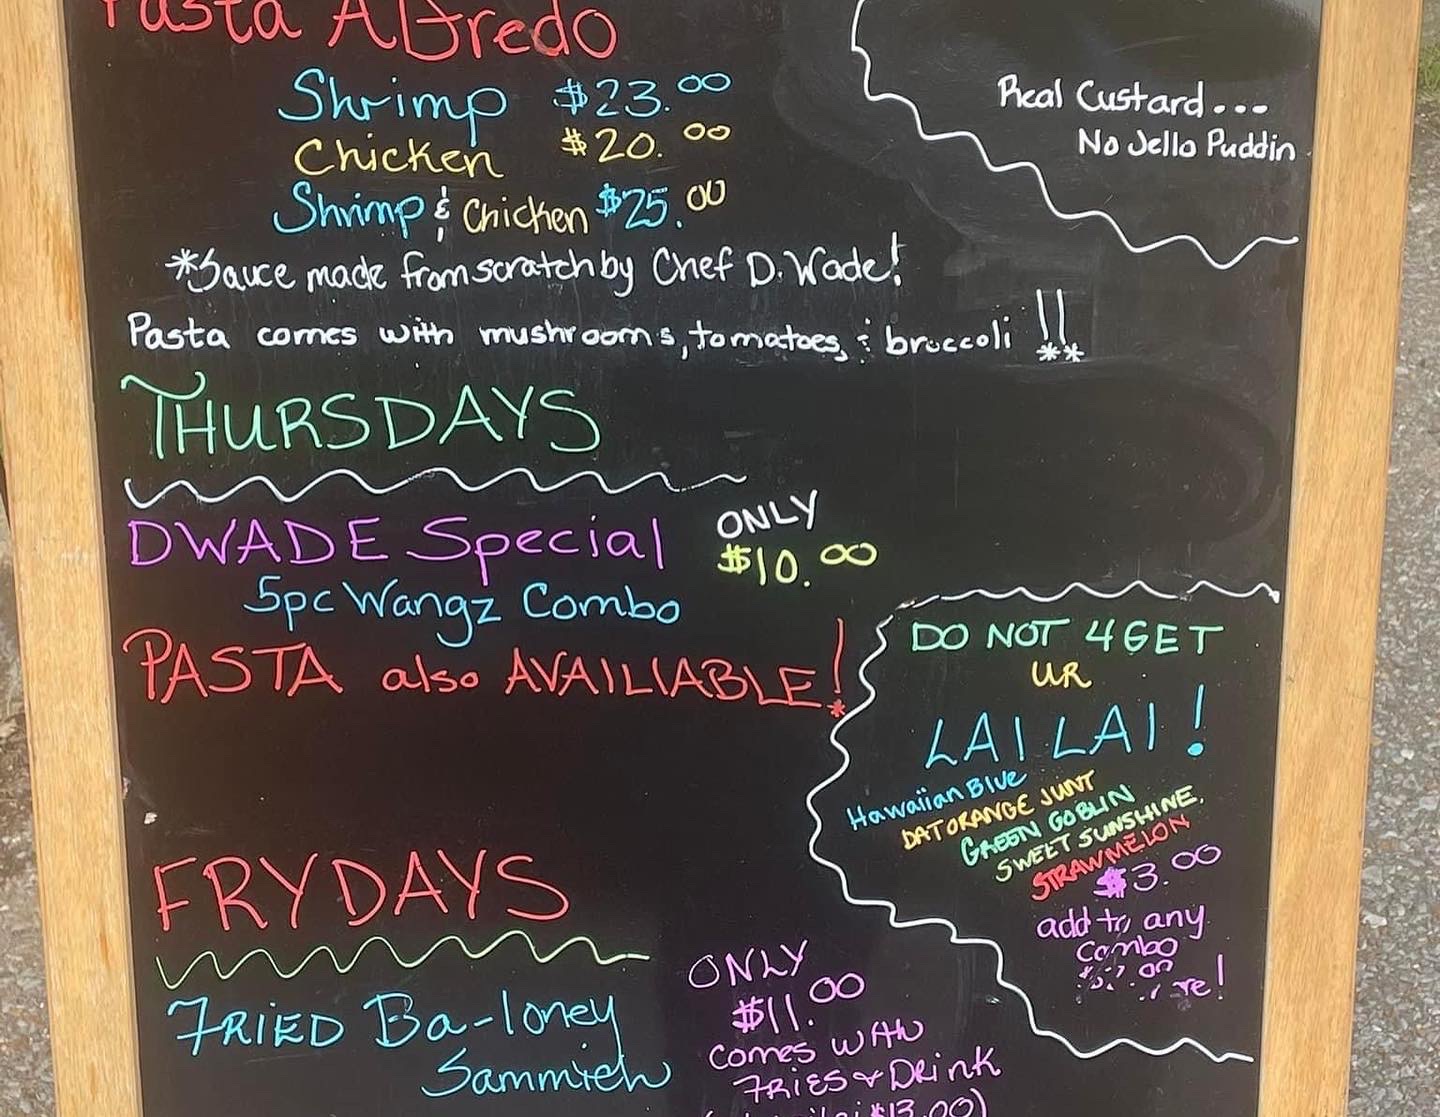 Pasta Alfredo
Shrimp $23.00
Chicken $20.00
Shrimp & Chicken $25.00
*Sauce made from scratch by Chef D. Wade!
Pasta comes with mushrooms, tomatoes, & broccoli !!
Real Custard...
No Jello Puddin
THURSDAYS
DWADE Special
ONLY
$10.00
5pc Wangz Combo
PASTA also AVAILIABLE!
DO NOT 4GET
UR
LAI LAI!
Hawaiian Blue
DAT ORANGE JUNT
GREEN GOBLIN
SWEET SUNSHINE
STRAWMELON
$3.00
add to any
combo
FRYDAYS
FRIED Ba-loney
Sammich
ONLY
$11.00
comes with
FRIES & DRINK
$13.00)